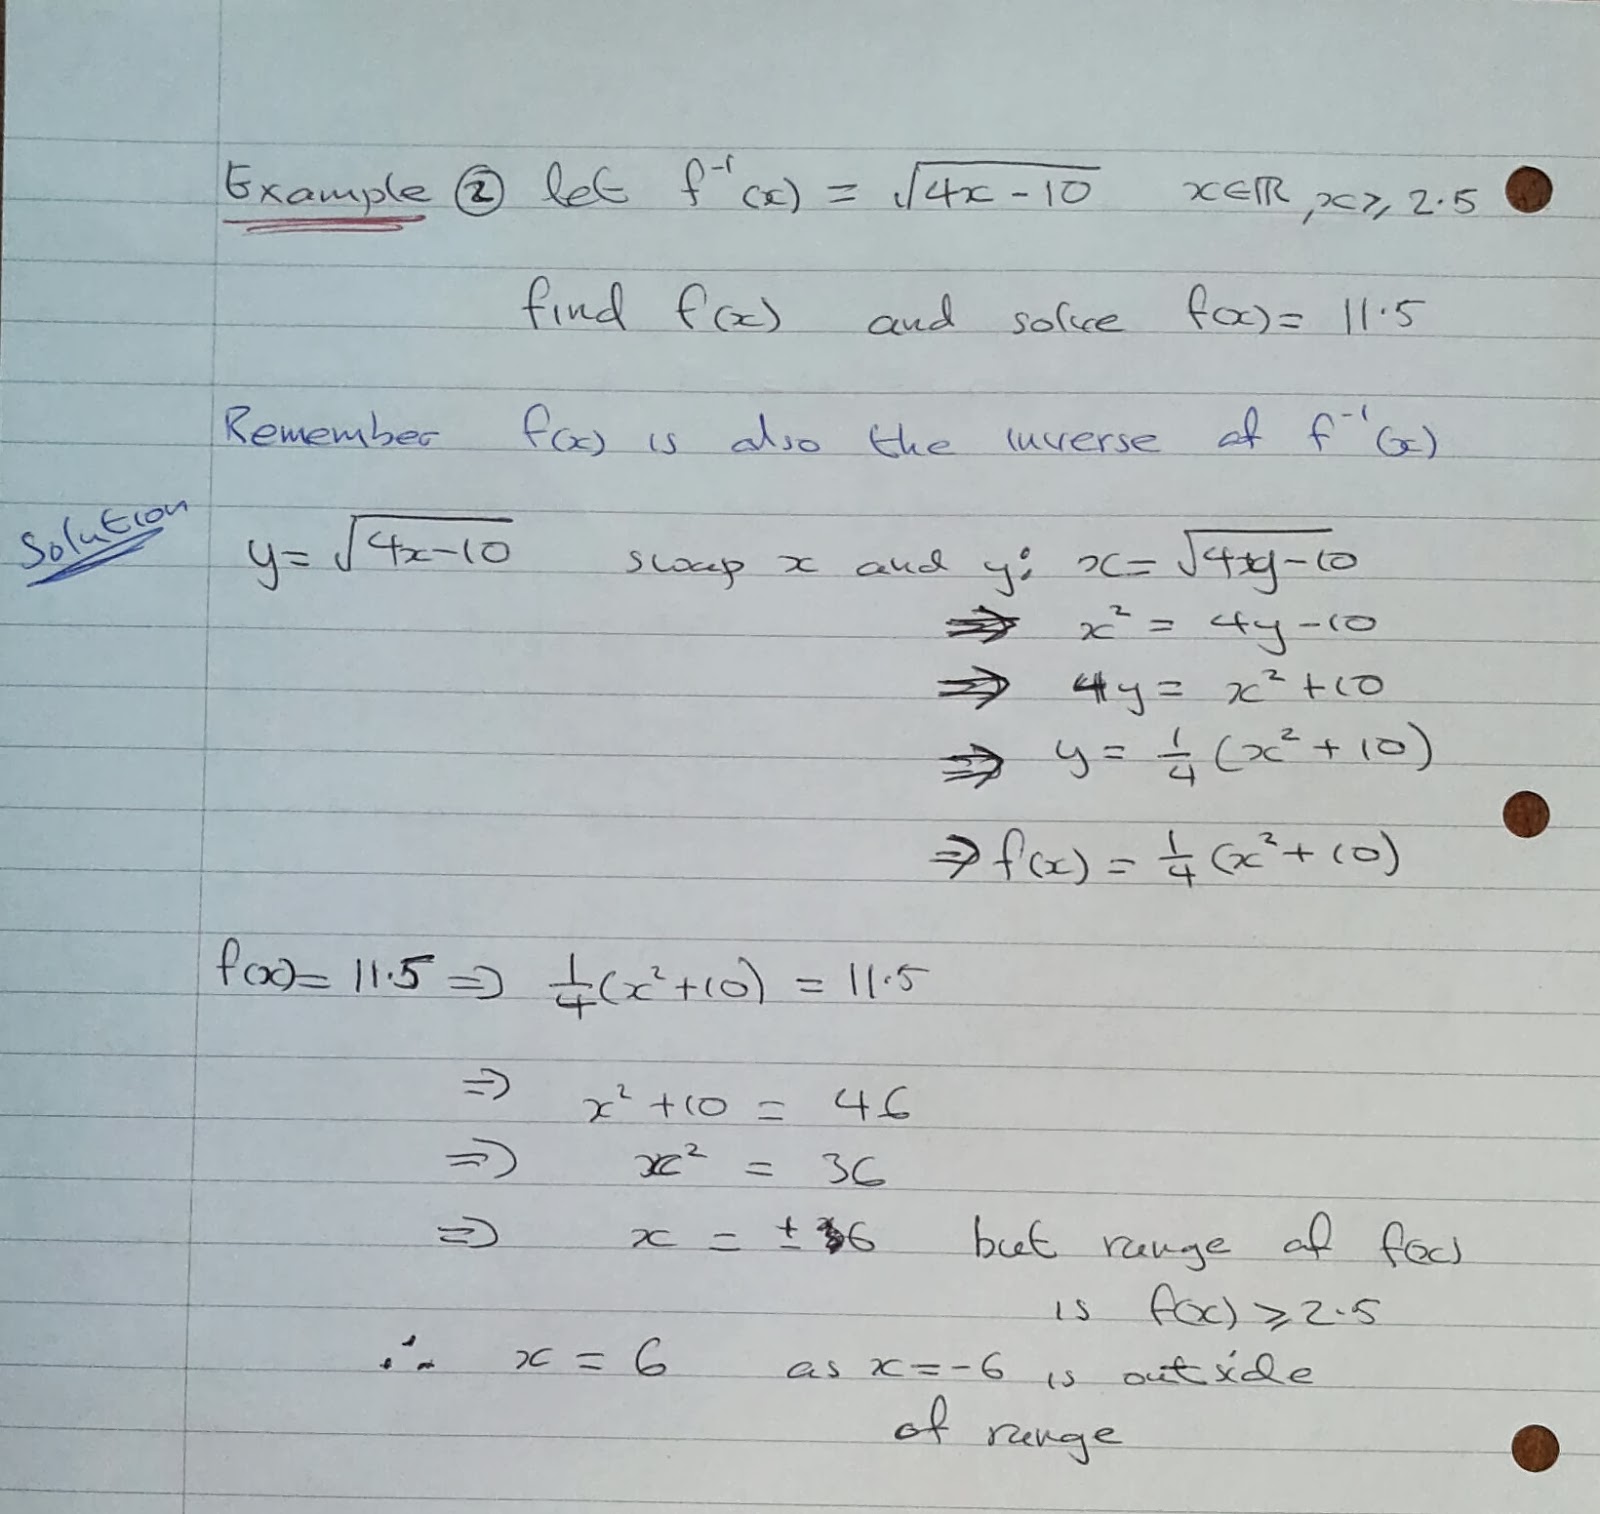 Example ② let f⁻¹(x) = √(4x-10) x∈ℝ, x⩾ 2.5
find f(x) and solve f(x) = 11.5
Remember f(x) is also the inverse of f⁻¹(x)
Solution y = √(4x-10) swap x and y: x = √(4y-10)
⇒ x² = 4y-10
⇒ 4y = x²+10
⇒ y = 1/4 (x² + 10)
⇒ f(x) = 1/4 (x²+10)
f(x) = 11.5 ⇒ 1/4(x²+10) = 11.5
⇒ x² +10 = 46
⇒ x² = 36
⇒ x = ±6 but range of f(x)
is f(x) ⩾ 2.5
∴ x = 6 as x = -6 is outside
of range